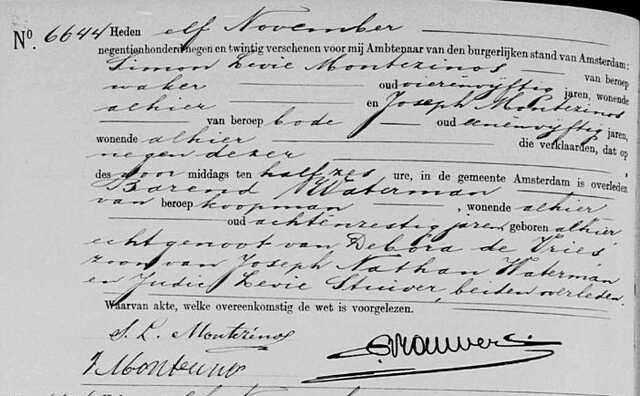 No. 6644 Heden elf November
negentienhonderd negen en twintig verschenen voor mij Ambtenaar van den burgerlijken stand van Amsterdam:
Simon Levie Montezinos van beroep
waker oud vierenvijftig jaren, wonende
alhier en Joseph Montezinos
van beroep bode oud eenenvijftig jaren,
wonende alhier die verklaarden, dat op
negen dezer
des voor middags ten half zes ure, in de gemeente Amsterdam is overleden
Barend Waterman
van beroep koopman, wonende alhier
oud achtenzestig jaren, geboren alhier
echtgenoot van Debora de Vries
zoon van Joseph Nathan Waterman
en Judic Levie Stuiver, beiden overleden.
Waarvan akte, welke overeenkomstig de wet is voorgelezen.
S. L. Montezinos
J Montezinos